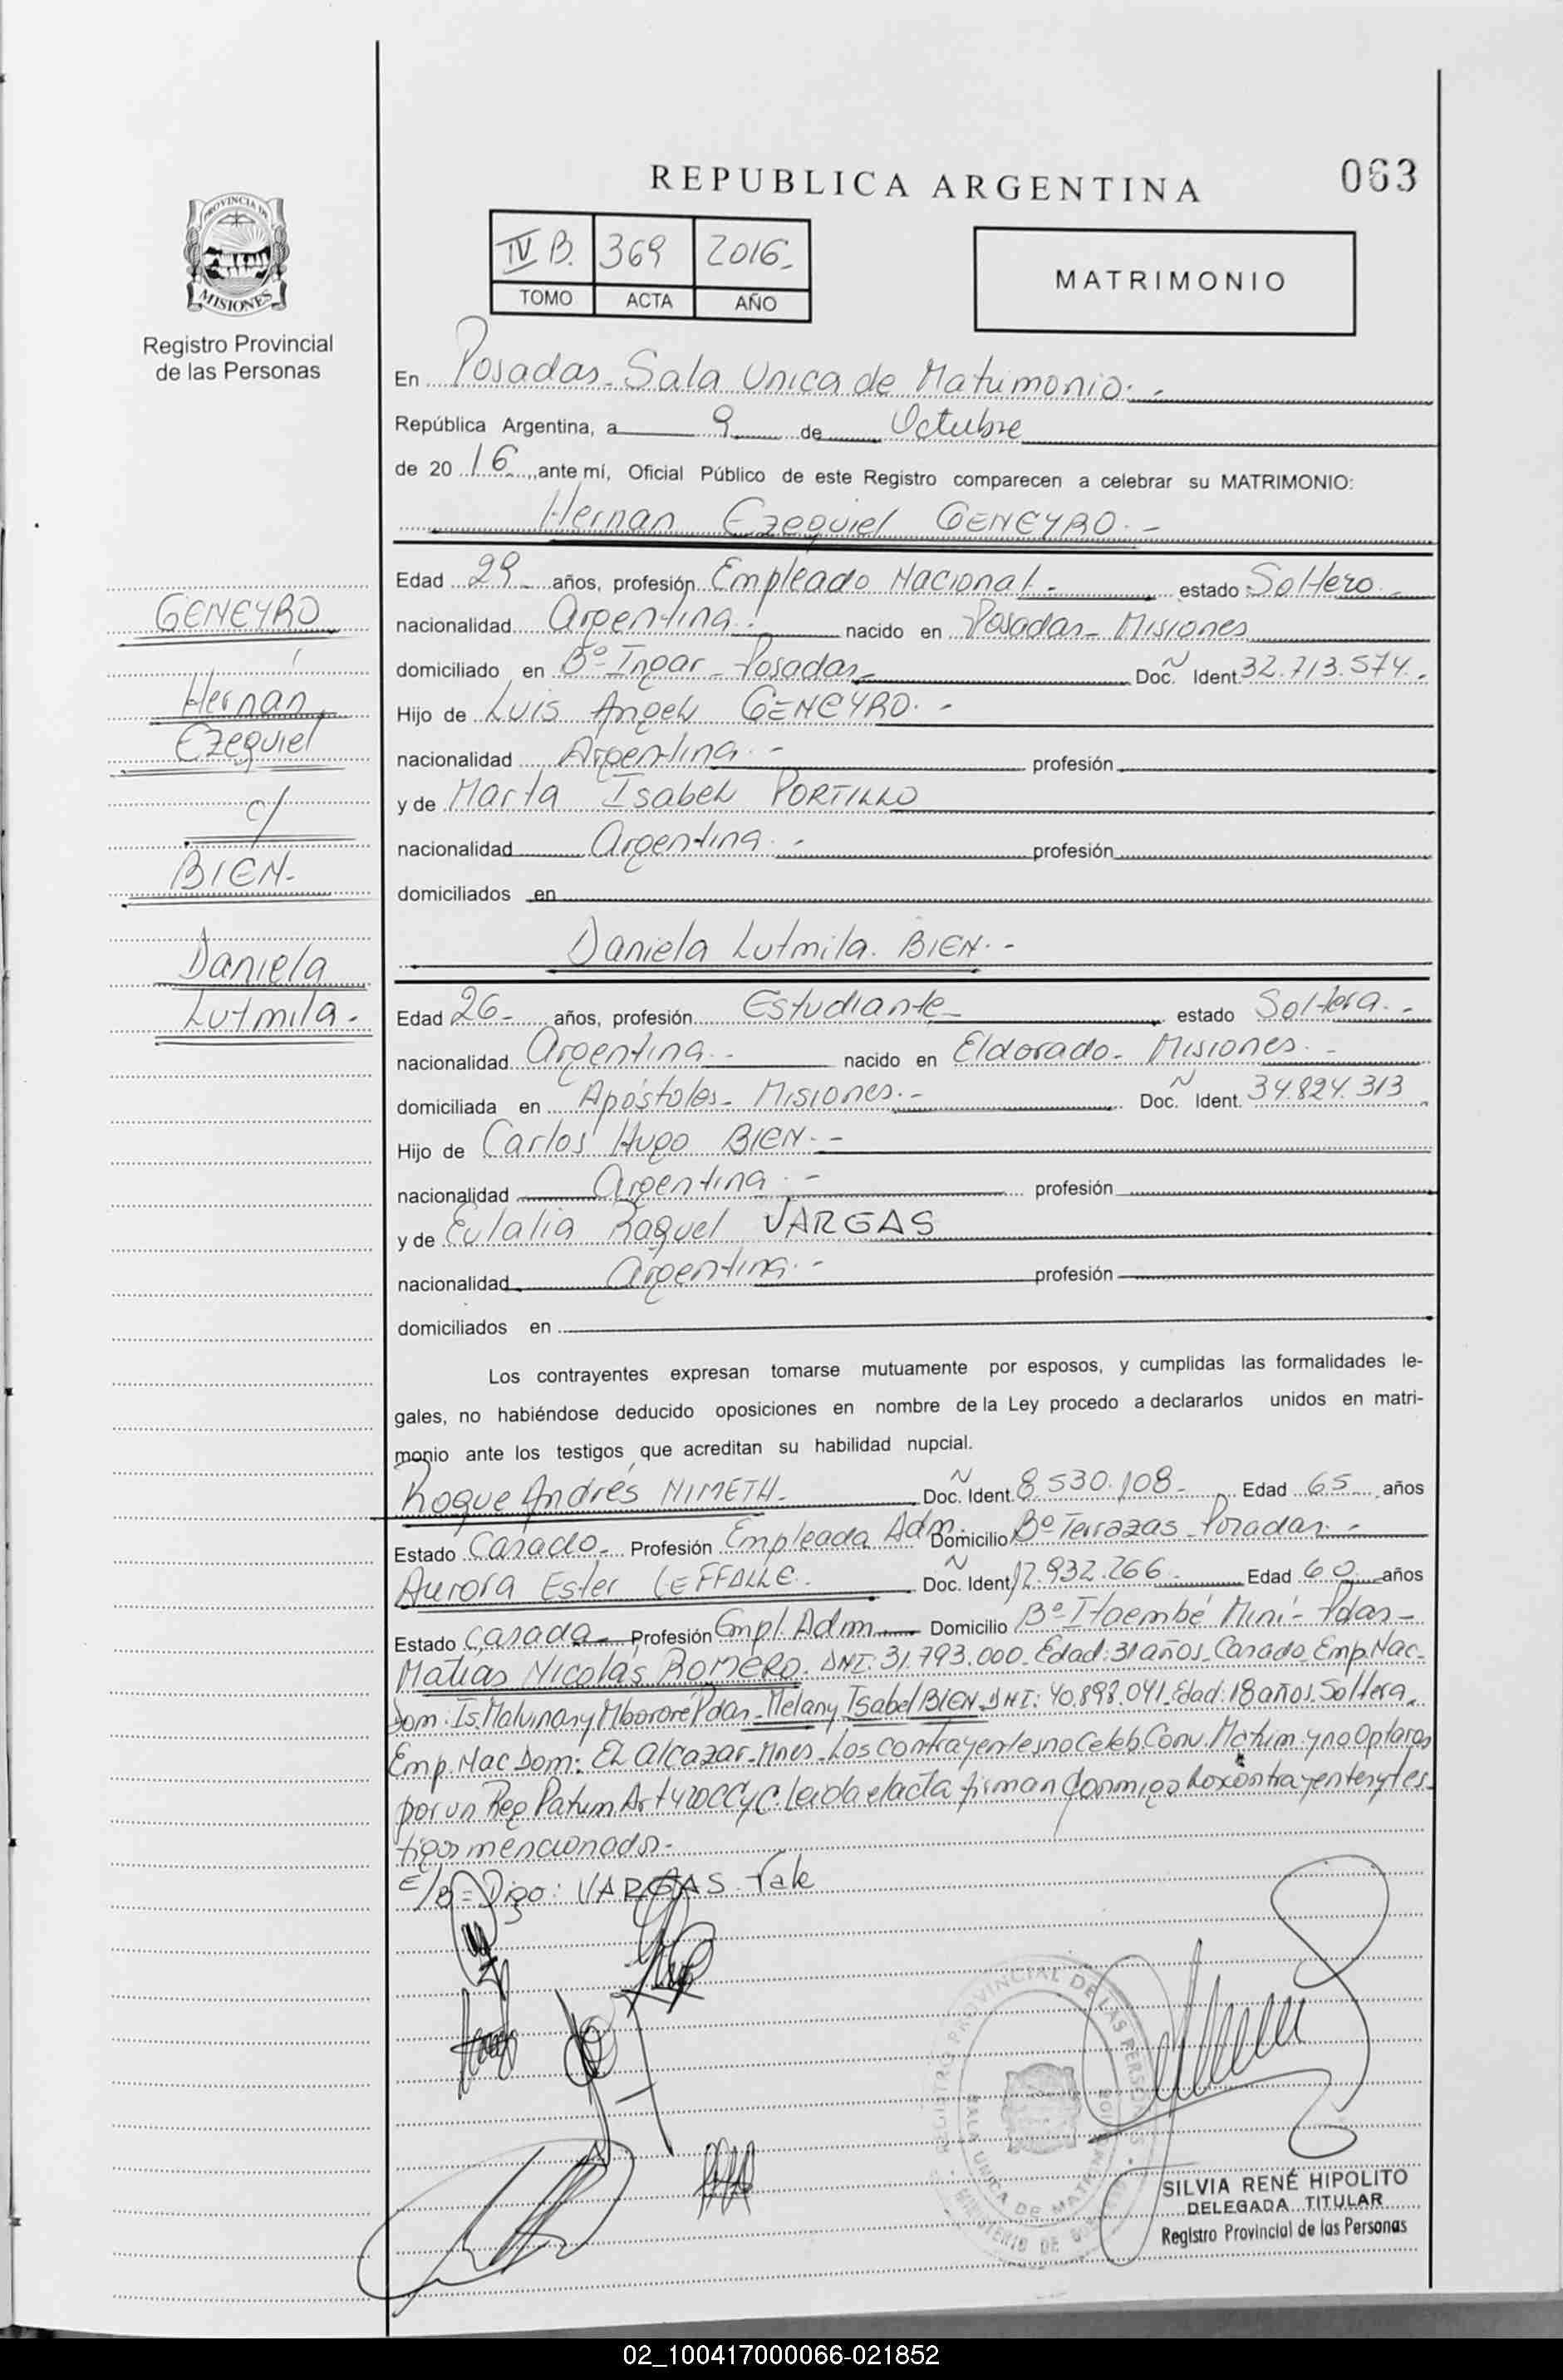 063
REPUBLICA ARGENTINA
IV B. 369 2016-
TOMO ACTA AÑO
MATRIMONIO
PROVINCIA DE
MISIONES
Registro Provincial
de las Personas
En Posadas - Sala Unica de Matrimonio. -
República Argentina, a 9 de Octubre
de 20 16 , ante mí, Oficial Público de este Registro comparecen a celebrar su MATRIMONIO:
Hernan Ezequiel GENEYRO. -
GENEYRO
Hernan
Ezequiel
c/
BIEN-
Daniela
Lutmila.-
Edad 29 años, profesión Empleado Nacional. - estado Soltero
nacionalidad Argentina. nacido en Posadas - Misiones
domiciliado en Bº Ingar - Posadas Doc. Ident. Ñ 32.713.574. -
Hijo de Luis Angel GENEYRO. -
nacionalidad Argentina. - profesión
y de Marta Isabel PORTILLO
nacionalidad Argentina. - profesión
domiciliados en
Daniela Lutmila. BIEN. -
Edad 26- años, profesión Estudiante estado Soltera. -
nacionalidad Argentina. - nacido en Eldorado - Misiones. -
domiciliada en Apóstoles - Misiones. - Doc. Ident. Ñ 34.824.313
Hijo de Carlos Hugo BIEN. -
nacionalidad Argentina. - profesión
y de Eulalia Raquel VARGAS
nacionalidad Argentina. - profesión
domiciliados en
Los contrayentes expresan tomarse mutuamente por esposos, y cumplidas las formalidades le-
gales, no habiéndose deducido oposiciones en nombre de la Ley procedo a declararlos unidos en matri-
monio ante los testigos que acreditan su habilidad nupcial.
Roque Andrés NIMETH. Doc. Ident. Ñ 8.530.108- Edad 65 años
Estado Casado - Profesión Empleada Adm. Domicilio Bº Terrazas - Posadas. -
Aurora Ester LEFFALLE. Doc. Ident. Ñ 12.932.266 - Edad 60 años
Estado Casada - Profesión Empl. Adm. Domicilio Bº Itaembé Miní - Pdas -
Matías Nicolás ROMERO. DNI: 31.793.000 - Edad: 31 años - Casado Emp. Nac -
Dom: Is. Malvinas y Mbororé Pdas - Melany Isabel BIEN - DNI: 40.898.041 - Edad: 18 años. Soltera.
Emp. Nac Dom: El Alcazar - Mnes - Los contrayentes no Celeb. Conv. Matrim. y no Optaron
por un Reg Patrim Art 420 CCyC. Leida el acta firman conmigo los contrayentes y tes-
tigos mencionados. -
E/B = Digo: VARGAS Vale
REGISTRO PROVINCIAL DE LAS PERSONAS
SALA UNICA DE MATRIMONIOS
MINISTERIO DE GOBIERNO
SILVIA RENÉ HIPOLITO
DELEGADA TITULAR
Registro Provincial de las Personas
02_100417000066-021852